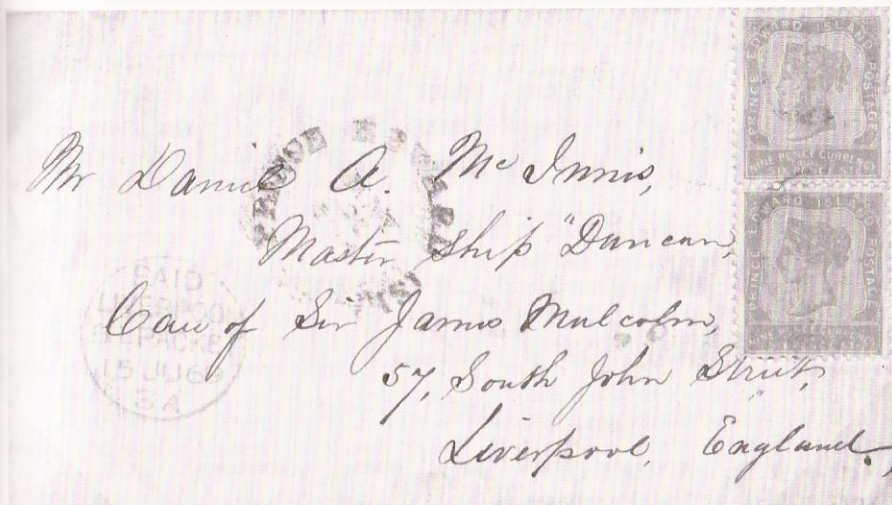 PRINCE EDWARD ISLAND POSTAGE
NINE PENCE CURRENCY
PRINCE EDWARD ISLAND POSTAGE
PRINCE EDWARD ISLAND
Mr Daniel A. Mc Innis,
Master Ship "Duncan,
Care of Sir James Malcolm,
57, South John Street,
Liverpool, England.
PAID
LIVERPOOL
BR. PACKET
15 JU 69
3A